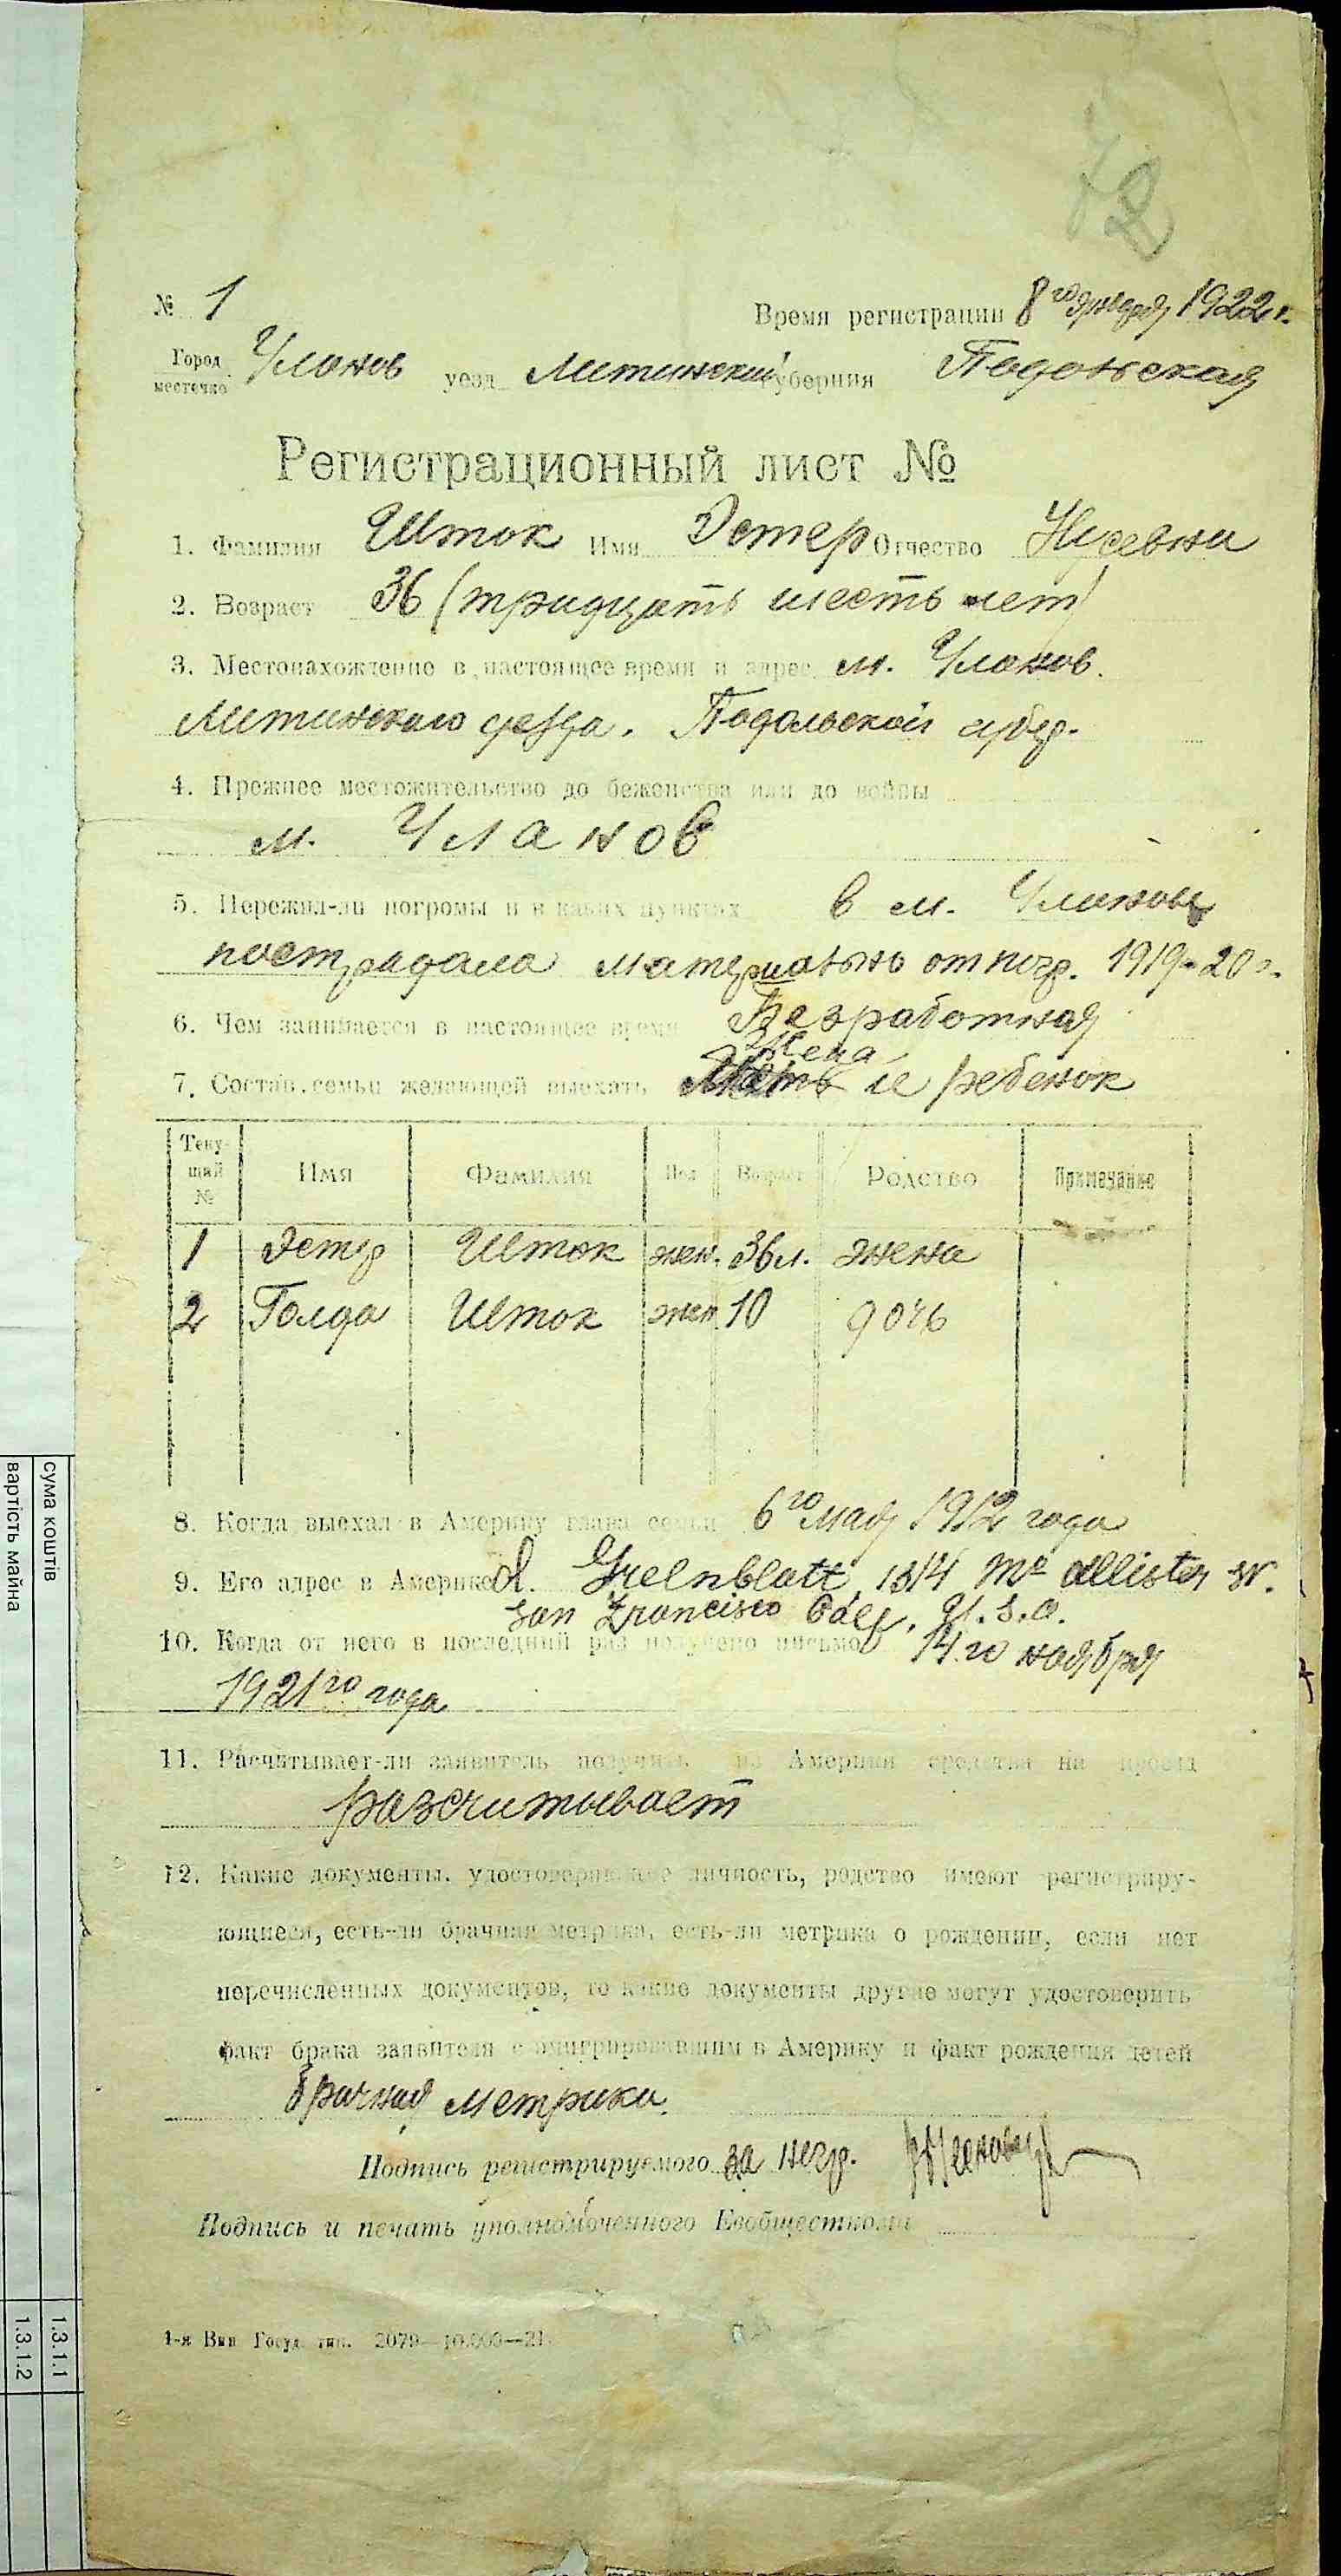 72
№ 1 Время регистрации 8го января 1922 г.
Город местечко Уланов уезд Литинский губерния Подольская
Регистрационный лист №
1. Фамилия Шток Имя Эстер Отчество Нусевна
2. Возраст 36 (тридцать шесть лет)
3. Местонахождение в настоящее время и адрес м. Уланов.
Литинского уезда. Подольской губер.
4. Прежнее местожительство до беженства или до войны
м. Уланов
5. Пережил-ли погромы и в каких пунктах в м. Уланове
пострадала материально от погр. 1919-20 г.
6. Чем занимается в настоящее время Безработная
жена
7. Состав семьи желающей выехать и ребенок
Теку-щий № Имя Фамилия Пол Возраст Родство Примечание
1 Эстер Шток жен. 36 л. жена
2 Голда Шток жен 10 дочь
8. Когда выехал в Америку глава семьи 6го мая 1912 года
9. Его адрес в Америке A. Greenblatt, 1314 Mc Allister St.
San Francisco Calif, U.S.A.
10. Когда от него в последний раз получено письмо 14го ноября
1921го года
11. Расчитывает-ли заявитель получить из Америки средства на проезд
разсчитывает
12. Какие документы, удостоверяющие личность, родство имеют регистриру-
ющиеся, есть-ли брачная метрика, есть-ли метрика о рождении, если нет
перечисленных документов, то какие документы другие могут удостоверить
факт брака заявителя с эмигрировавшим в Америку и факт рождения детей
Брачная метрика.
Подпись регистрируемого за негр.
Подпись и печать уполномоченного Евобщесткома
1-я Вин Госуд тип. 2079—10.000—21
сума коштів
вартість майна
1.3.1.1
1.3.1.2